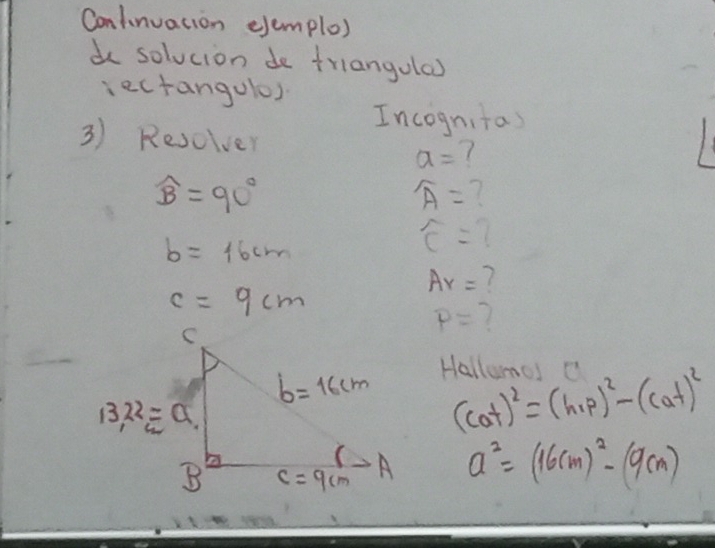 Continuación ejemplos
de solución de triangulos
rectangulos.
3) Resolver
B̂ = 90°
b = 16cm
c = 9cm
Incognitas
a = ?
Â = ?
Ĉ = ?
Ar = ?
P = ?
C
b = 16cm
13,22 = a
B
c = 9cm
A
Hallamos a
(cat)² = (hip)² - (cat)²
a² = (16cm)² - (9cm)